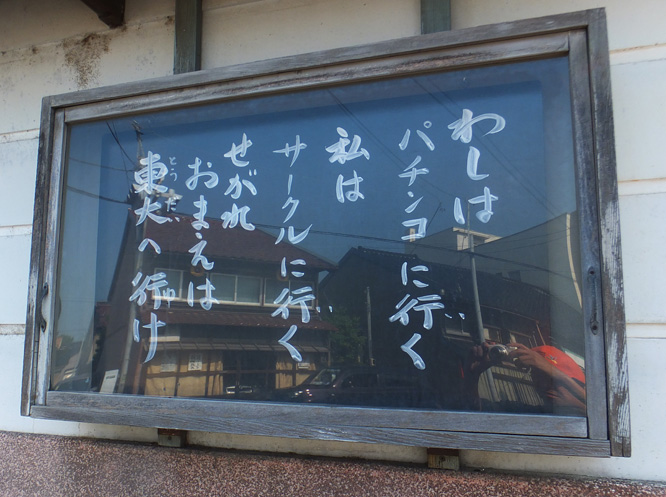 わしは
パチンコに行く
私は
サークルに行く
せがれ
おまえは
東大へ行け